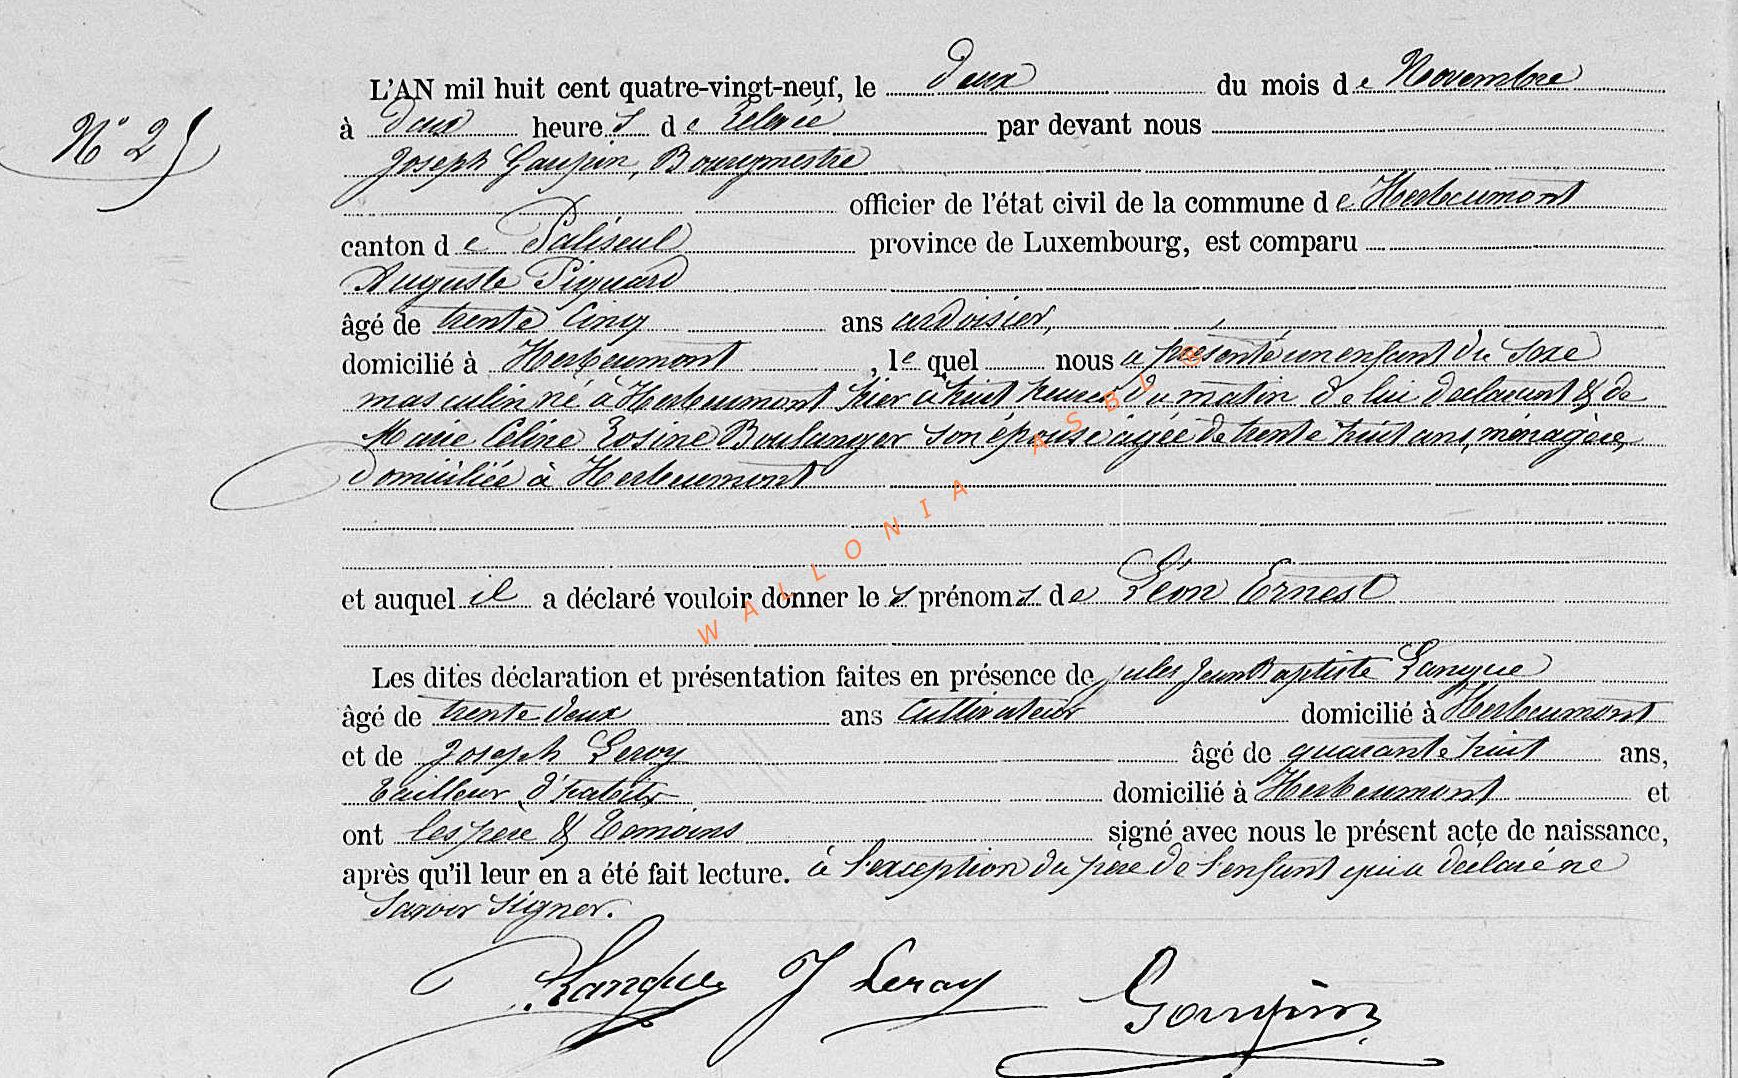 L'AN mil huit cent quatre-vingt-neuf, le deux du mois de Novembre
N° 25
à deux heures de relevée par devant nous
Joseph Goupin, Bourgmestre
officier de l'état civil de la commune de Herbeumont
canton de Paliseul province de Luxembourg, est comparu
Auguste Piquard
âgé de trente cinq ans ardoisier,
domicilié à Herbeumont, lequel nous a présenté un enfant du sexe
masculin né à Herbeumont hier à huit heures du matin de lui déclarant & de
Marie Céline Rosine Boulanger son épouse agée de trente huit ans, ménagère,
domiciliée à Herbeumont
et auquel il a déclaré vouloir donner les prénoms de Léon Ernest
Les dites déclaration et présentation faites en présence de Jules Jean Baptiste Langue
âgé de trente deux ans Cultivateur domicilié à Herbeumont
et de Joseph Leroy âgé de quarante huit ans,
tailleur d'habits domicilié à Herbeumont et
ont les père & temoins signé avec nous le présent acte de naissance,
après qu'il leur en a été fait lecture. à l'exception du père de l'enfant qui a declaré ne
savoir signer.
Langue J Leroy Goupin
WALLONIA ASBL ©